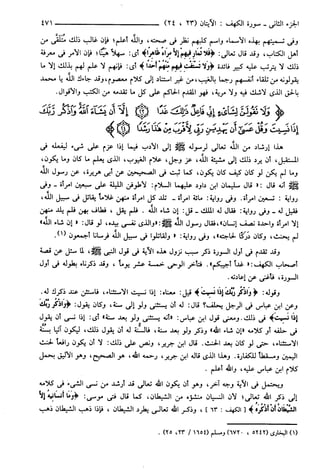 الجزء الثاني - سورة الكهف : الآيتان (٢٣ ، ٢٤) ٤٧١
وفي تسميتهم بهذه الأسماء واسم كلبهم نظر في صحته ، والله أعلم ؛ فإن غالب ذلك متلقى من
أهل الكتاب ، وقد قال تعالى : ﴿ فلا تمار فيهم إلا مراء ظاهرا ﴾ أي : سهلا هينا ؛ فإن الأمر في معرفة
ذلك لا يترتب عليه كبير فائدة ﴿ ولا تستفت فيهم منهم أحدا ﴾ أي : فإنهم لا علم لهم بذلك إلا ما
يقولونه من تلقاء أنفسهم رجما بالغيب ، من غير استناد إلى كلام معصوم ، وقد جاءك الله يا محمد
بالحق الذي لا شك فيه ولا مرية ، فهو المقدم الحاكم على كل ما تقدمه من الكتب والأقوال .
﴿ ولا تقولن لشايء إني فاعل ذلك غدا (٢٣) إلا أن يشاء الله واذكر ربك
إذا نسيت وقل عسى أن يهدين ربي لأقرب من هذا رشدا (٢٤) ﴾
هذا إرشاد من الله تعالى لرسوله ﷺ إلى الأدب فيما إذا عزم على شيء ليفعله في
المستقبل ، أن يرد ذلك إلى مشيئة الله ، عز وجل ، علام الغيوب ، الذي يعلم ما كان وما يكون ،
وما لم يكن لو كان كيف كان يكون ، كما ثبت في الصحيحين عن أبي هريرة ، عن رسول الله
ﷺ أنه قال : « قال سليمان ابن داود عليهما السلام : لأطوفن الليلة على سبعين امرأة - وفي
رواية : تسعين امرأة . وفي رواية : مائة امرأة - تلد كل امرأة منهن غلاماً يقاتل في سبيل الله ،
فقيل له - وفي رواية : فقال له الملك - قل : إن شاء الله . فلم يقل ، فطاف بهن فلم يلد منهن
إلا امرأة واحدة نصف إنسان » ، فقال رسول الله ﷺ : « والذي نفسي بيده ، لو قال : « إن شاء الله »
لم يحنث ، وكان دركًا لحاجته » ، وفي رواية : « ولقاتلوا في سبيل الله فرسانا أجمعون » (١) .
وقد تقدم في أول السورة ذكر سبب نزول هذه الآية في قول النبي ﷺ ، لما سئل عن قصة
أصحاب الكهف : « غدا أجيبكم » . فتأخر الوحي خمسة عشر يوما ، وقد ذكرناه بطوله في أول
السورة ، فأغنى عن إعادته .
وقوله : ﴿ واذكر ربك إذا نسيت ﴾ قيل : معناه : إذا نسيت الاستثناء ، فاستثن عند ذكرك له .
وعن ابن عباس في الرجل يحلف؟ قال : له أن يستثني ولو إلى سنة ، وكان يقول : ﴿ واذكر ربك
إذا نسيت ﴾ في ذلك . ومعنى قول ابن عباس : « أنه يستثني ولو بعد سنة » أي : إذا نسي أن يقول
في حلفه أو كلامه « إن شاء الله » وذكر ولو بعد سنة ، فالسنة له أن يقول ذلك ، ليكون آتيا بسنة
الاستثناء ، حتى لو كان بعد الحنث . قال ابن جرير ، ونص على ذلك : لا أن يكون رافعاً لحنث
اليمين ومسقطاً للكفارة . وهذا الذي قاله ابن جرير ، رحمه الله ، هو الصحيح ، وهو الأليق بحمل
كلام ابن عباس عليه ، والله أعلم .
ويحتمل في الآية وجه آخر ، وهو أن يكون الله تعالى قد أرشد من نسي الشيء في كلامه
إلى ذكر الله تعالى ؛ لأن النسيان منشؤه من الشيطان ، كما قال فتى موسى : ﴿ وما أنسانيه إلا
الشيطان أن أذكره ﴾ [ الكهف : ٦٣ ] ، وذكر الله تعالى يطرد الشيطان ، فإذا ذهب الشيطان ذهب
(١) البخاري (٥٢٤٢ ، ٦٧٢٠) ومسلم (١٦٥٤ / ٢٣ ، ٢٥) .